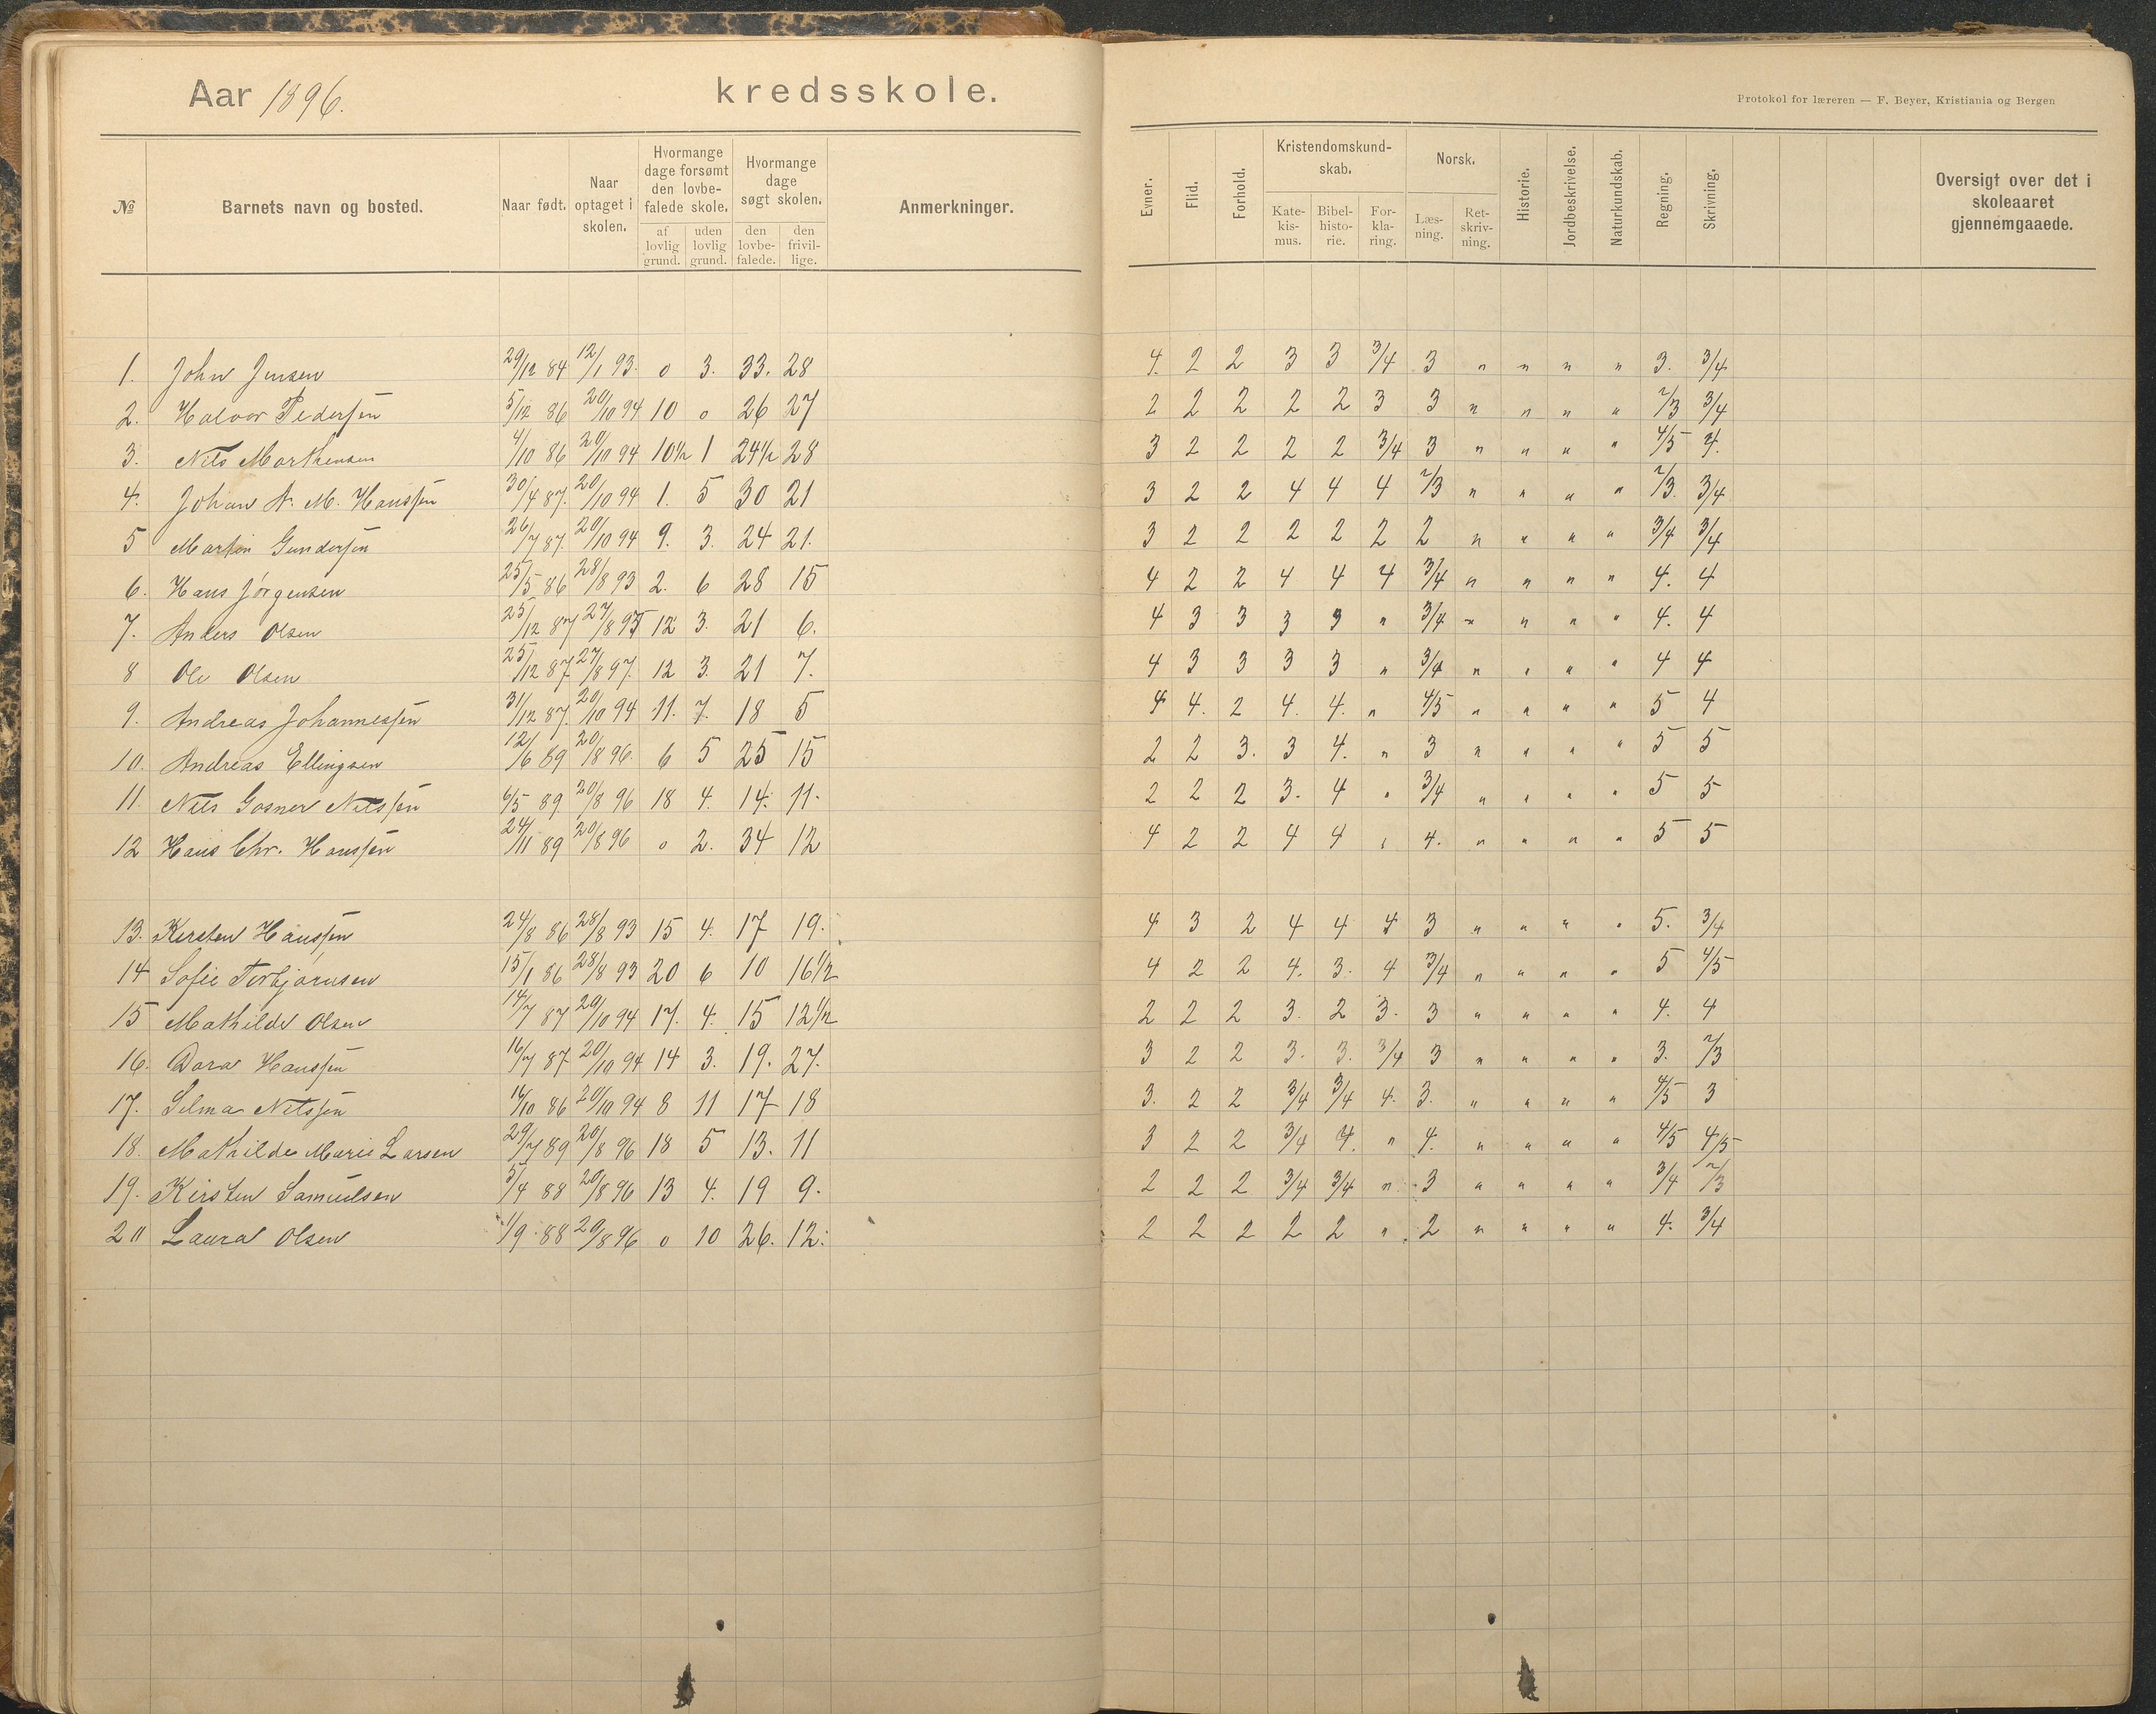 Aar 1896. kredsskole.
Protokol for læreren — F. Beyer, Kristiania og Bergen
№ Barnets navn og bosted. Naar født. Naar optaget i skolen. Hvormange dage forsømt den lovbefalede skole. af lovlig grund. uden lovlig grund. Hvormange dage søgt skolen. den lovbefalede. den frivillige. Anmerkninger. Evner. Flid. Forhold. Kristendomskundskab. Katekismus. Bibelhistorie. Forklaring. Norsk. Læsning. Retskrivning. Historie. Jordbeskrivelse. Naturkundskab. Regning. Skrivning. Oversigt over det i skoleaaret gjennemgaaede.
1. John Jensen 29/12 84 12/1 93. 0 3. 33. 28 4. 2 2 3 3 3/4 3 " " " " 3. 3/4
2. Halvor Pedersen 5/12 86 20/10 94 10 0 26 27 2 2 2 2 2 3 3 " " " " 2/3 3/4
3. Nils Marthensen 4/10 86 20/10 94 10½ 1 24½ 28 3 2 2 2 2 3/4 3 " " " " 4/5 4.
4. Johan A. M. Hanssen 30/4 87. 20/10 94 1. 5 30 21 3 2 2 4 4 4 2/3 " " " " 2/3. 3/4
5 Martin Gundersen 26/7 87. 20/10 94 9. 3. 24 21. 3 2 2 2 2 2 2 " " " " 3/4 3/4
6. Hans Jörgensen 25/5 86 28/8 93 2. 6 28 15 4 2 2 4 4 4 3/4 " " " " 4. 4
7. Anders Olsen 25/12 87 27/8 95 12 3. 21 6. 4 3 3 3 3 " 3/4 " " " " 4. 4
8 Ole Olsen 25/12 87 27/8 97. 12 3. 21 7. 4 3 3 3 3 " 3/4 " " " " 4 4
9. Andreas Johannessen 31/12 87. 20/10 94 11. 7. 18 5 4 4. 2 4. 4. " 4/5 " " " " 5 4
10. Andreas Ellingsen 12/6 89 20/8 96. 6 5 25 15 2 2 3. 3 4. " 3 " " " " 5 5
11. Nils Gosner Nilssen 6/5 89 20/8 96 18 4. 14. 11. 2 2 2 3. 4 " 3/4 " " " " 5 5
12 Hans Chr. Hanssen 24/11 89 20/8 96 0 2. 34 12 4 2 2 4 4 " 4. " " " " 5 5
13. Kirsten Hanssen 24/8 86 28/8 93 15 4. 17 19. 4 3 2 4 4 4 3 " " " " 5. 3/4
14 Sofie Torbjörnsen 15/1 86 28/8 93 20 6 10 16½ 4 2 2 4. 3. 4 3/4 " " " " 5 4/5
15 Mathilde Olsen 14/7 87 20/10 94 17. 4. 15 12½ 2 2 2 3. 2 3. 3 " " " " 4. 4
16. Dora Hanssen 16/7 87 20/10 94 14 3. 19. 27. 3 2 2 3. 3. 3/4 3 " " " " 3. 2/3
17. Selma Nilssen 16/10 86 20/10 94 8 11 17 18 3. 2 2 3/4 3/4 4. 3. " " " " 4/5 3
18. Mathilde Marie Larsen 29/7 89 20/8 96 18 5 13. 11 3 2 2 3/4 4. " 4. " " " " 4/5 4/5
19. Kirsten Samuelsen 5/4 88 20/8 96 13 4. 19 9. 2 2 2 3/4 3/4 " 3 " " " " 3/4 2/3
20 Laura Olsen 1/9 88 20/8 96 0 10 26. 12. 2 2 2 2 2 " 2 " " " " 4. 3/4